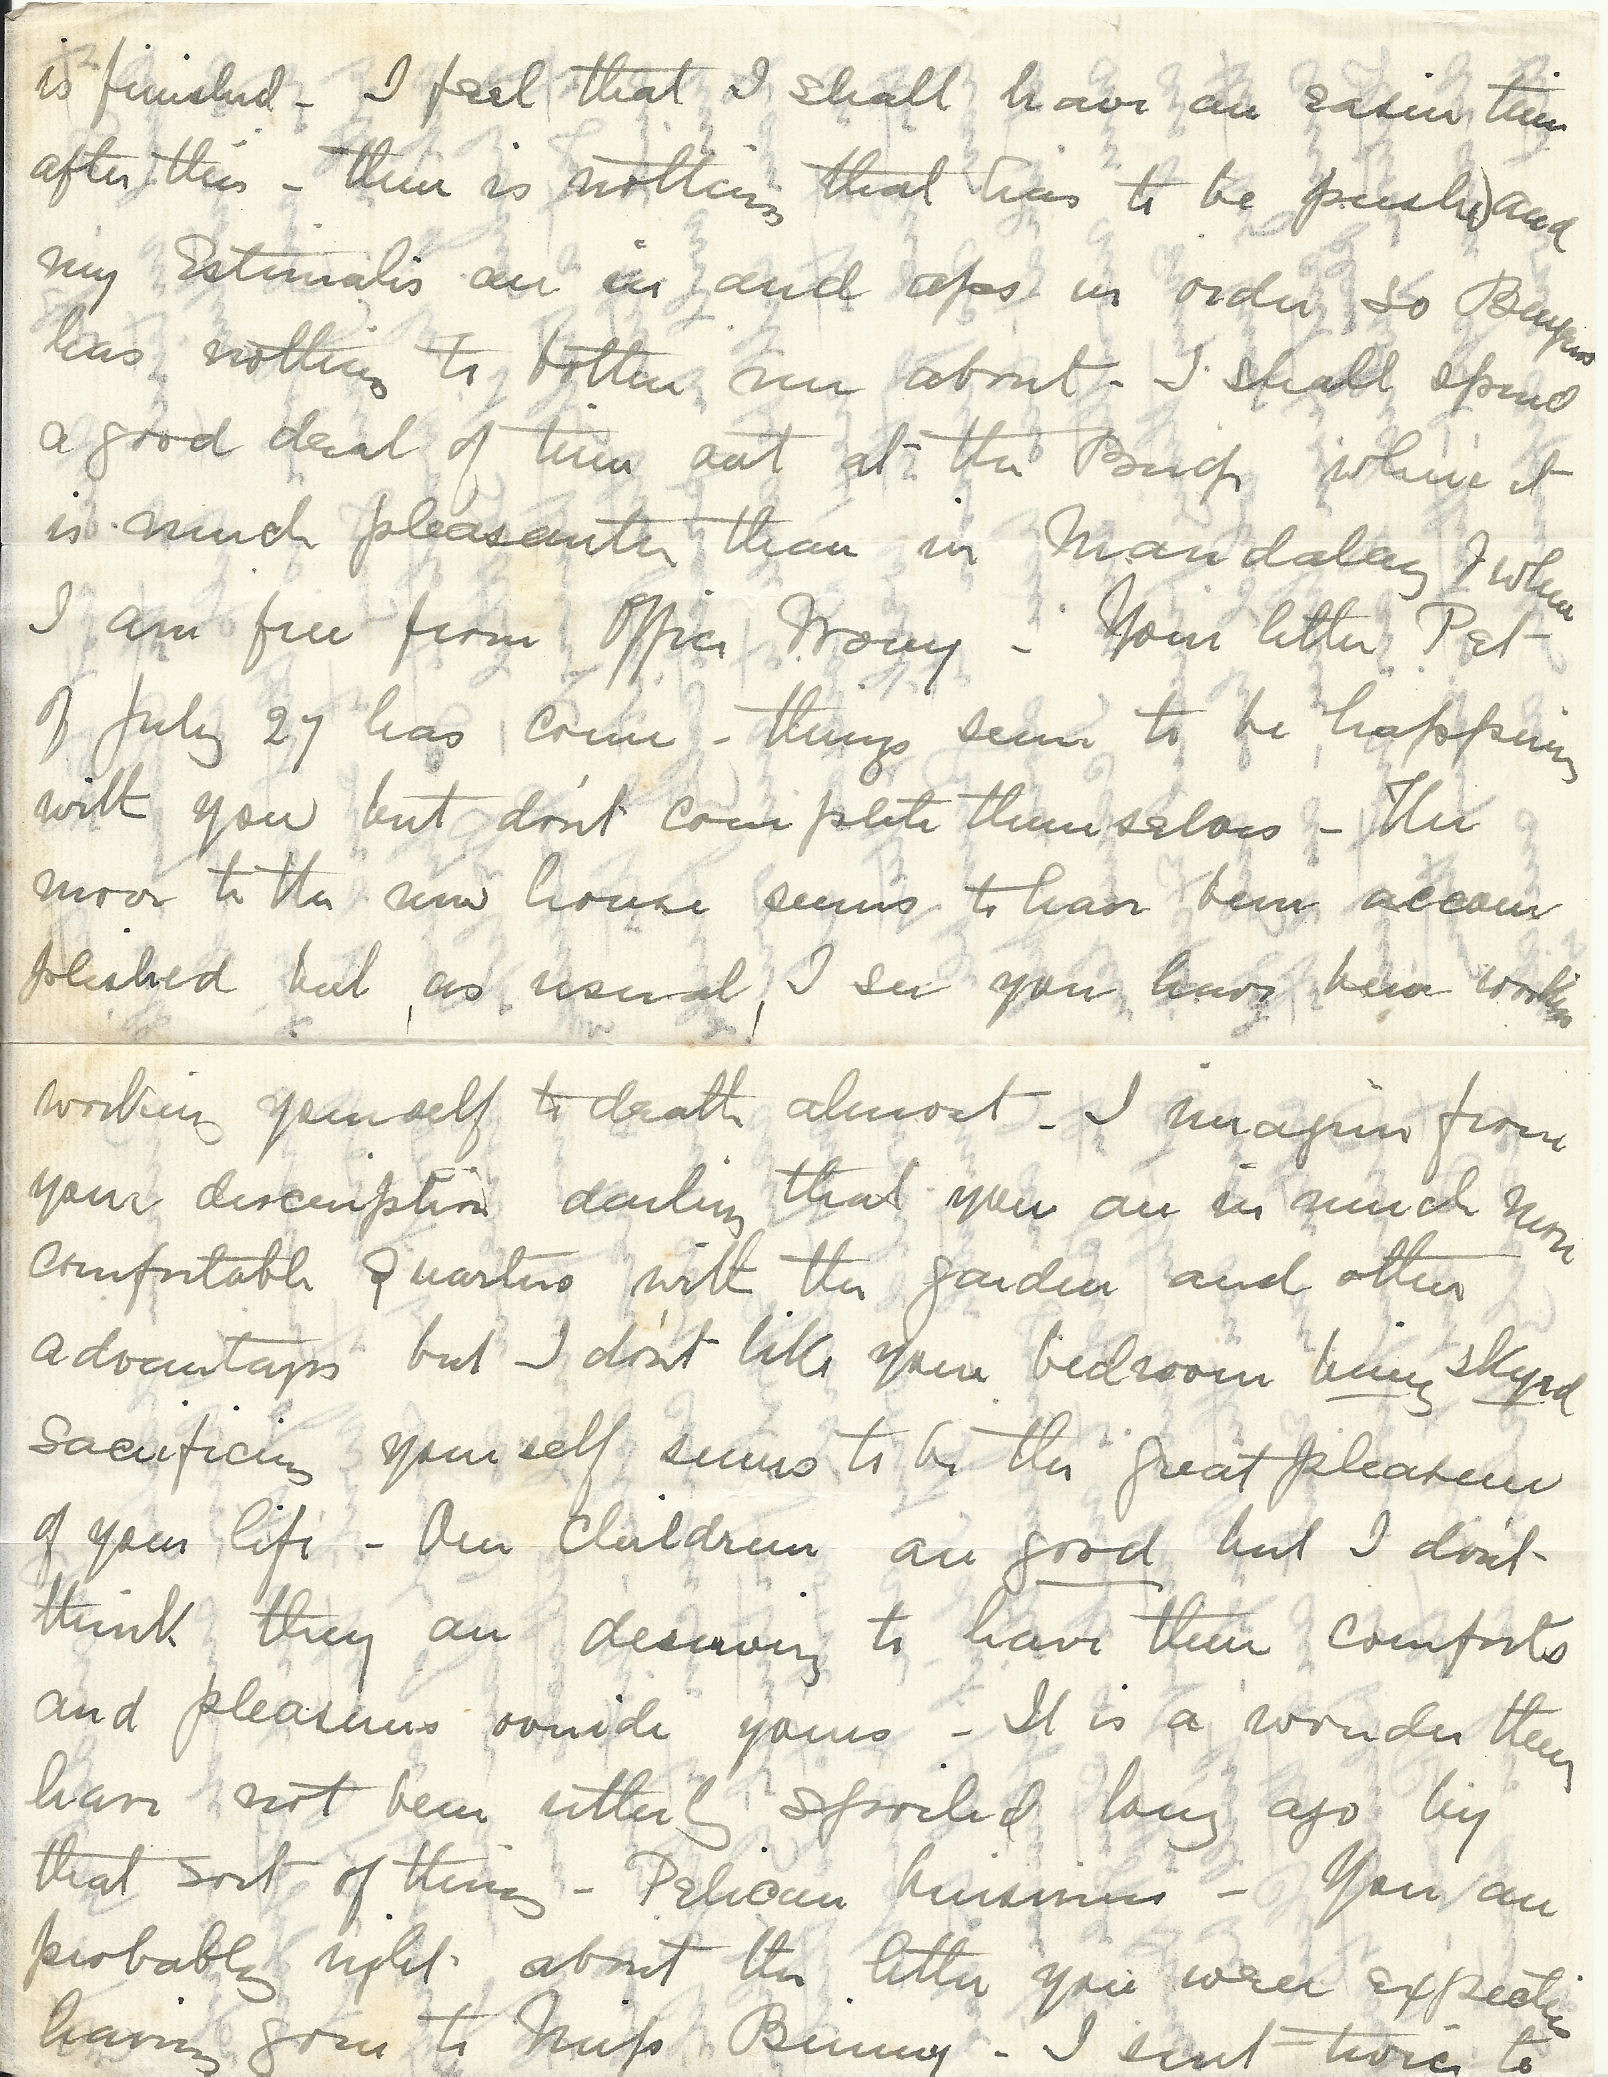 is finished - I feel that I shall have an easier time
after this - there is nothing that has to be pushed and
my Estimates are in and in order so
has nothing to bother me about - I shall spend
a good deal of time out at the where it
is much pleasanter than in Mandalay & when
I am free from Office Worry - Your letter Pet
of July 27 has come - things seem to be happening
with you but don't complete themselves - The
move to the new house seems to have been accom
plished but, as usual, I see you have been working
working yourself to death almost - I imagine from
your description darling that you are in much more
comfortable Quarters with the garden and other
advantages but I don't like your bedroom being skyed
sacrificing yourself seems to be the great pleasure
of your life - Our children are good but I don't
think they are deserving to have their comforts
and pleasures override yours - It is a wonder they
have not been utterly spoiled long ago by
that sort of thing - Pelican business - You are
probably right about the letter you were expecting
having gone to Miss Binny - I sent twice to